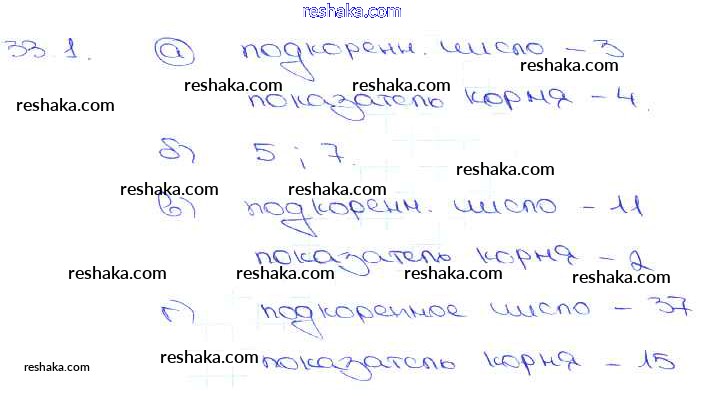 reshaka.com
33.1. а) подкоренн. число – 3
reshaka.com reshaka.com reshaka.com
reshaka.com показатель корня – 4.
б) 5 ; 7.
reshaka.com
reshaka.com reshaka.com
в) подкоренн. число – 11
показатель корня – 2
reshaka.com reshaka.com reshaka.com reshaka.com
г) подкоренное число – 37
reshaka.com reshaka.com reshaka.com
показатель корня – 15
reshaka.com